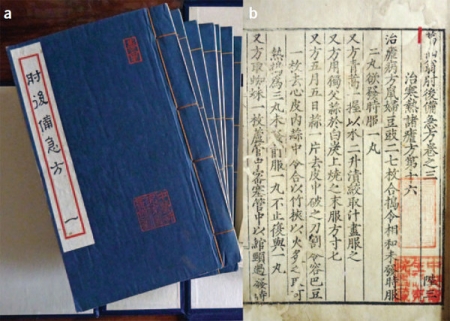 a
肘後備急方
一
b
肘後備急方卷之三
治寒熱諸瘧方第十六
治瘧病方鼠婦豆豉二七枚合搗令相和未發時服
二丸欲發時服一丸
又方青蒿一握以水二升漬絞取汁盡服之
又方用獨父蒜於白炭上燒之末服方寸匕
又方五月五日蒜一片去皮中破之刀割令容巴豆
一枚去心皮內蒜中令合以竹挾以火炙之取可
熱搗為三丸未發前服一丸不止復與一丸
又方取蜘蛛一枚蘆管中密塞管中以綰頸過發時